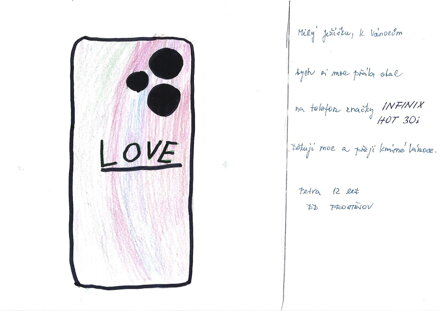 LOVE
Milý Ježíšku, k Vánocům
bych si moc přála obal
na telefon značky INFINIX
HOT 30i
Děkuji moc a přeji krásné Vánoce.
Petra 12 let
ZŠ PROSTĚJOV